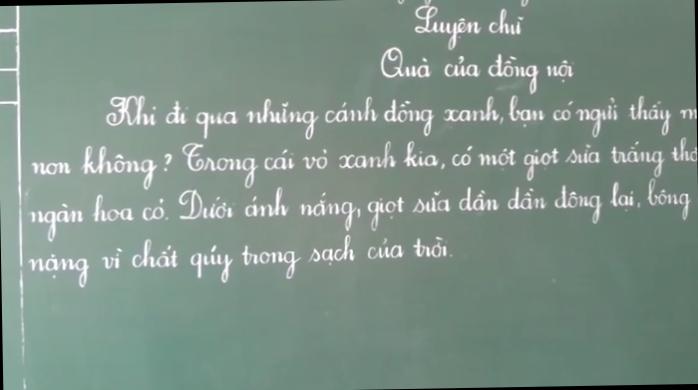 Luyện chữ
Quà của đồng nội
Khi đi qua những cánh đồng xanh, bạn có ngửi thấy
non không? Trong cái vỏ xanh kia, có một giọt sữa trắng
ngàn hoa cỏ. Dưới ánh nắng, giọt sữa dần dần đông lại, bông
nặng vì chất quý trong sạch của trời.